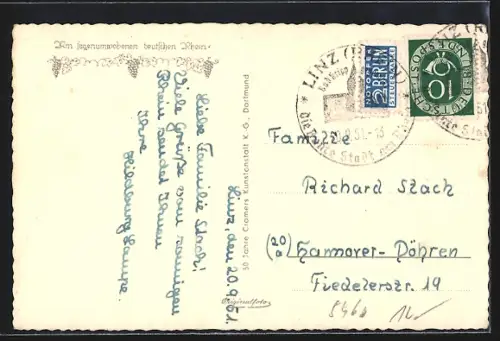 Am sagenumwobenen deutschen Rhein
Linz, den 20.9.51.
Liebe Familie Stach!
Viele Grüße vom sonnigen
Rhein sendet Ihnen
Ihre
50 Jahre Cramers Kunstanstalt K.-G., Dortmund
Originalfoto
LINZ (RHEIN)
Die bunte Stadt am Rhein
NOTOPFER
2 BERLIN
STEUERMARKE
DEUTSCHE BUNDESPOST
10
Familie
Richard Stach
(20a) Hannover-Döhren
Fiedelerstr. 19